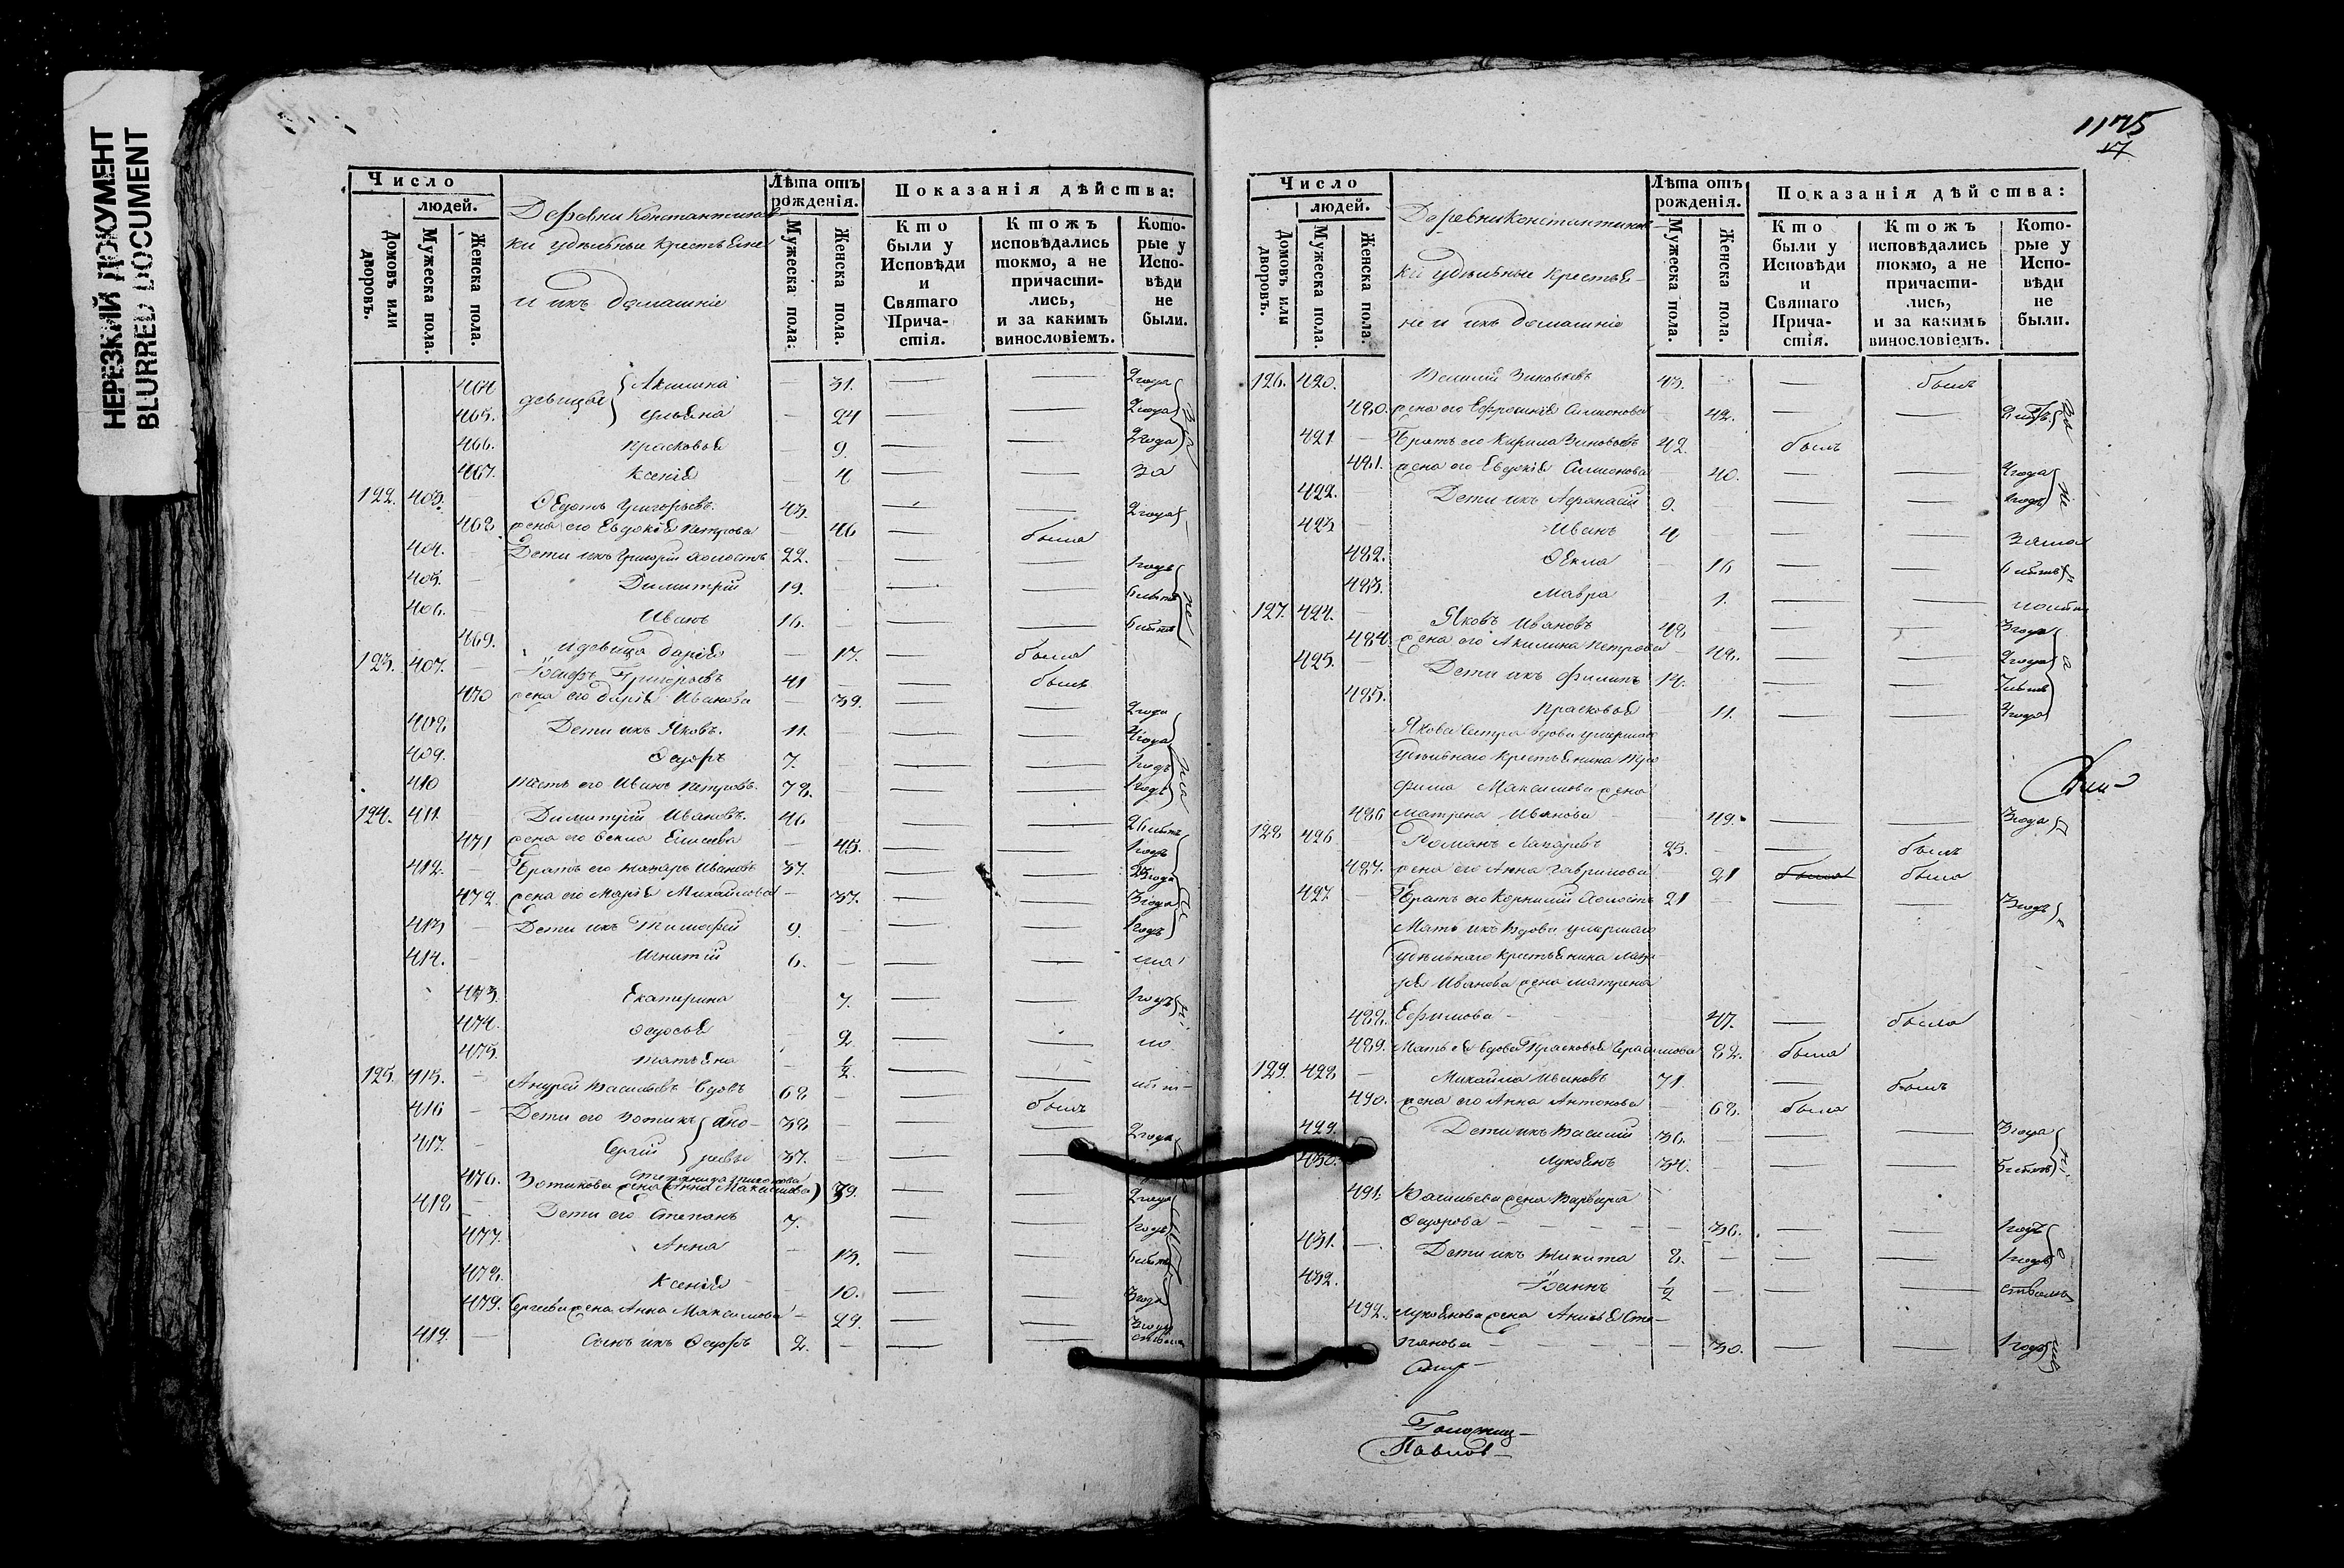 НЕРЕЗКИЙ ДОКУМЕНТ
BLURRED DOCUMENT
Число
людей.
Домовъ или дворовъ.
Мужеска пола.
Женска пола.
Деревни Константинов-
ки удѣльные крестьяне
и ихъ домашніе
Лѣта отъ рожденія.
Мужеска пола.
Женска пола.
Показанія дѣйства:
Кто были у Исповѣди и Святаго Прича-стія.
Ктожъ исповѣдались токмо, а не причасти-лись, и за какимъ винословіемъ.
Кото-рые у Испо-вѣди не были.
464 девицы Акилина — 31. — — 2 года
465. Ульяна — 24 — — 2 года
466. Прасковья — 9. — — 2 года
467. Ксенія — 4 — — за
122. 403. Ѳедотъ Григорьевъ. 43. — — 2 года
468 жена его Евдокія Петрова — 46 — была
404. Дети ихъ Григорій холостъ 22. — — 1 годъ
405. Димитрій 19. — — 6 лѣтъ
406. Иванъ 16. — — 6 лѣтъ
469. и девица Дарія — 17. — была
123. 407. Григорьевъ 41 — — былъ
470 жена его Дарія Иванова — 39. — — 2 года
408. Дети ихъ Яковъ. 11. — — 2 года
409. Ѳедоръ 7. — — 1 годъ
410 Тесть его Иванъ Петровъ. 78. — — 1 годъ
124. 411. Димитрій Ивановъ. 46 — —
471 жена его Ѳекла Елисеева — 45. — — 1 годъ
412. Братъ его Назаръ Ивановъ 37. — —
472. жена его Марія Михайлова — 37. — — 3 года
413 Дети ихъ Тимофей 9. — — 1 годъ
414. Игнатій 6. — —
473. Екатерина 7. — — 1 годъ
474. Ѳедосья 2. — —
475. Татьяна ½. — —
125. 415. Андрей Васильевъ вдовъ 68 — былъ
416 Дети его Зотикъ 38 — — 2 года
417. Сергій 37. — —
Степанида
476. Зотикова жена (Анна Максимова) 39. — — 2 года
418 Дети его Степанъ 7. — — 1 годъ
477. Анна — 13. — — 6 лѣтъ
478. Ксенія — 10. — — 3 года
479. Сергеева жена Анна Максимова — 29. — — 3 года
419. Сынъ ихъ Ѳедоръ 2. — — —
1175
17
Число
людей.
Домовъ или дворовъ.
Мужеска пола.
Женска пола.
Деревни Константинов-
ки удѣльные крестья-
не и ихъ домашніе
Лѣта отъ рожденія.
Мужеска пола.
Женска пола.
Показанія дѣйства:
Кто были у Исповѣди и Святаго Прича-стія.
Ктожъ исповѣдались токмо, а не причасти-лись, и за какимъ винословіемъ.
Кото-рые у Испо-вѣди не были.
126. 420. Зиновьевъ 43. — былъ
480. жена его Ефросинія Симонова 42. — —
421 Братъ его Кирила Зиновьевъ 42. былъ
481. жена его Евдокія Симонова 40. — —
422. Дети ихъ Афанасій 9. — — 1 годъ
423 Иванъ 4 — —
482. Ѳекла 16 — — 6 лѣтъ
483. Мавра 1. — —
127. 424. Яковъ Ивановъ 48 — — 3 года
484. жена его Акилина Петрова — 48. — — 2 года
425. Дети ихъ Филипъ 14. — — 7 лѣтъ
485. Прасковья — 11. — —
Якова сестра вдова умершаго
удѣльнаго крестьянина Тро-
фима Максимова жена
486 Матрена Иванова 49. — — 3 года
128 426 Романъ Лазаревъ 25. — былъ
487. жена его Анна Гаврилова — 21 была была
427. Братъ его Корнилій холостъ 21 — —
Мать ихъ вдова умершаго
удѣльнаго крестьянина Лаза-
ря Иванова жена Матрена
488. Ефимова — 47. — была
489. Мать ея вдова Прасковья Герасимова 82. была
129. 428 Михайла Ивановъ 71. — былъ
490. жена его Анна Антонова — 68. была
429. Дети ихъ Василій 36. — — 3 года
430. Лукьянъ 34. — — 5 лѣтъ
491. Васильева жена Варвара
Ѳедорова — 36. — — 1 годъ
431. Дети ихъ Никита 8. — — 1 годъ
432. Іоаннъ ½ — —
492. Лукьянова жена Анисья Сте-
панова — 30. — — 1 годъ
Павлов